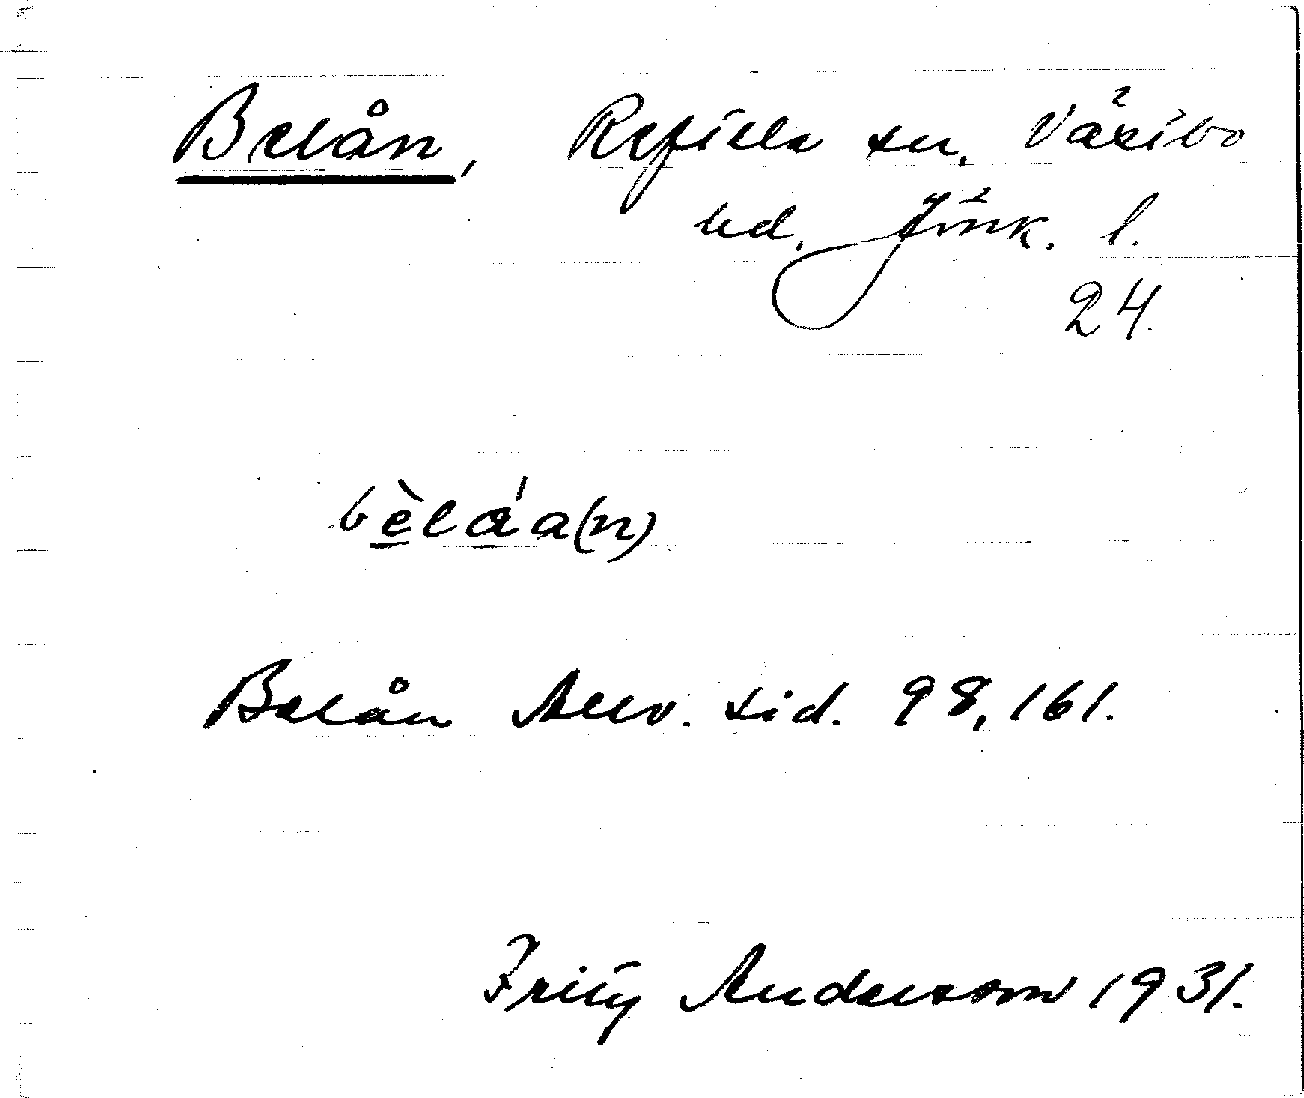 Belån, Reftele sn. Västbo
hd. Jönk. l.
24.
bèlá̱a(n)
Belån Allv. sid. 98, 161.
Fritz Andersson 1931.